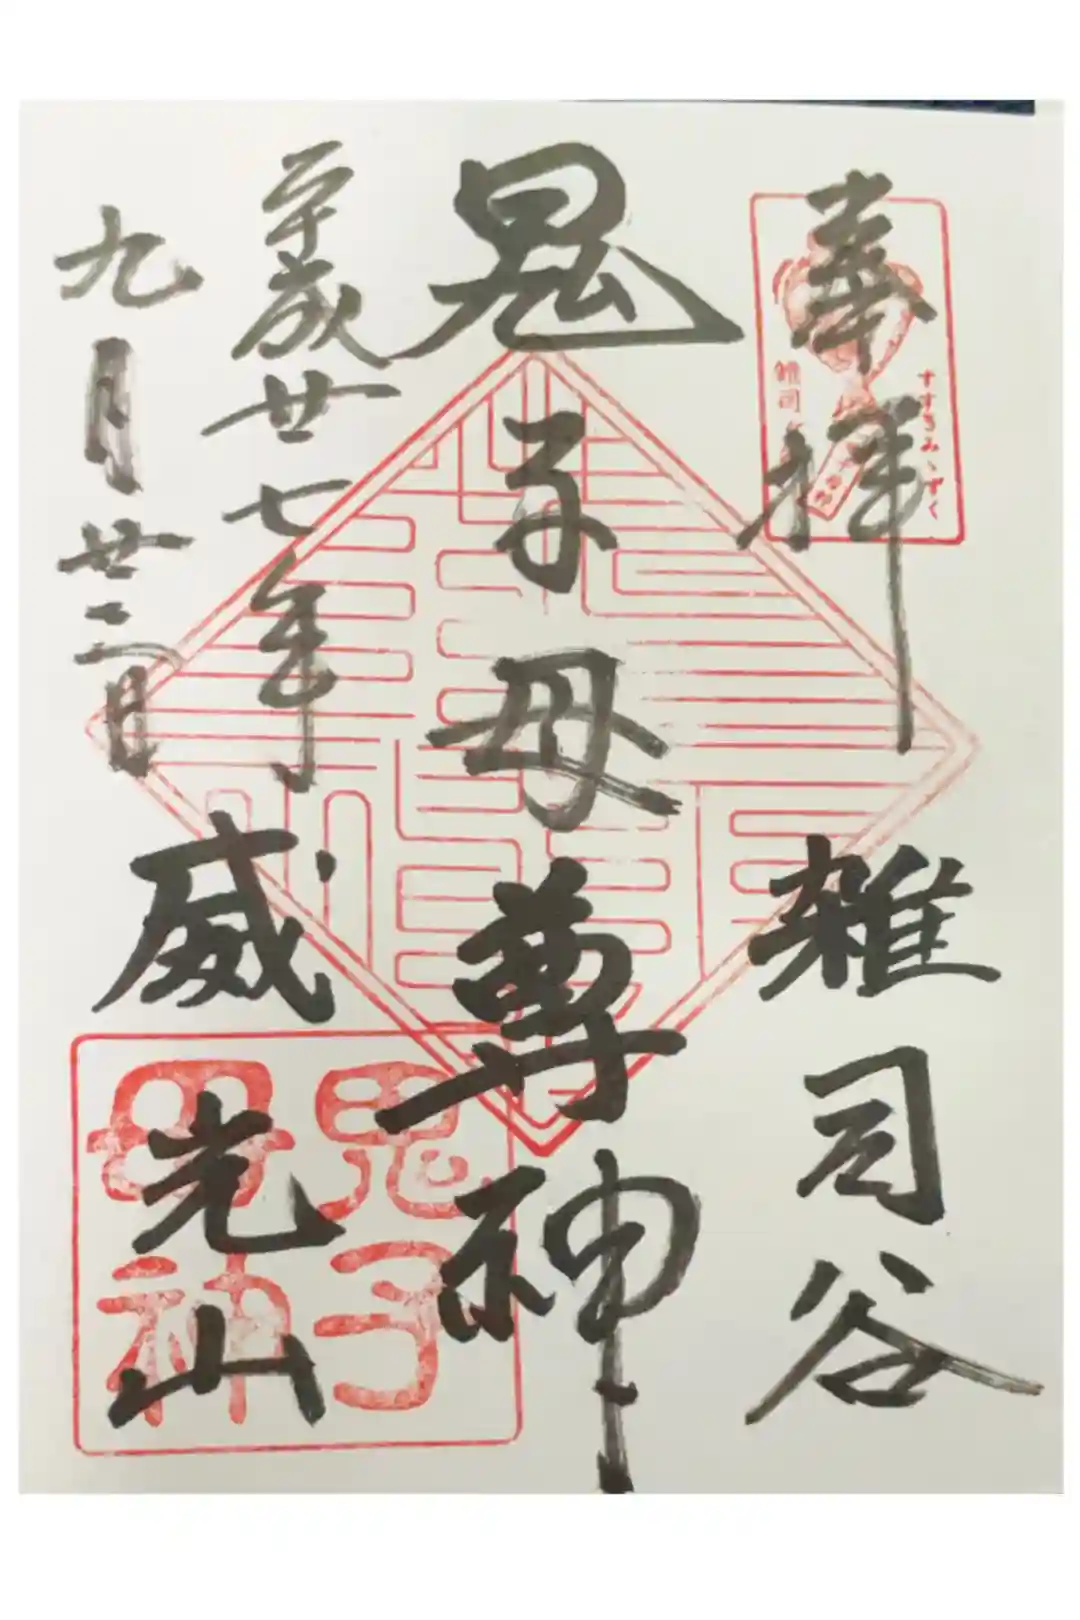 奉拝
雑司谷
鬼子母尊神
平成廿七年
九月廿三日
威光山
すすきみゝずく
鬼子
母神